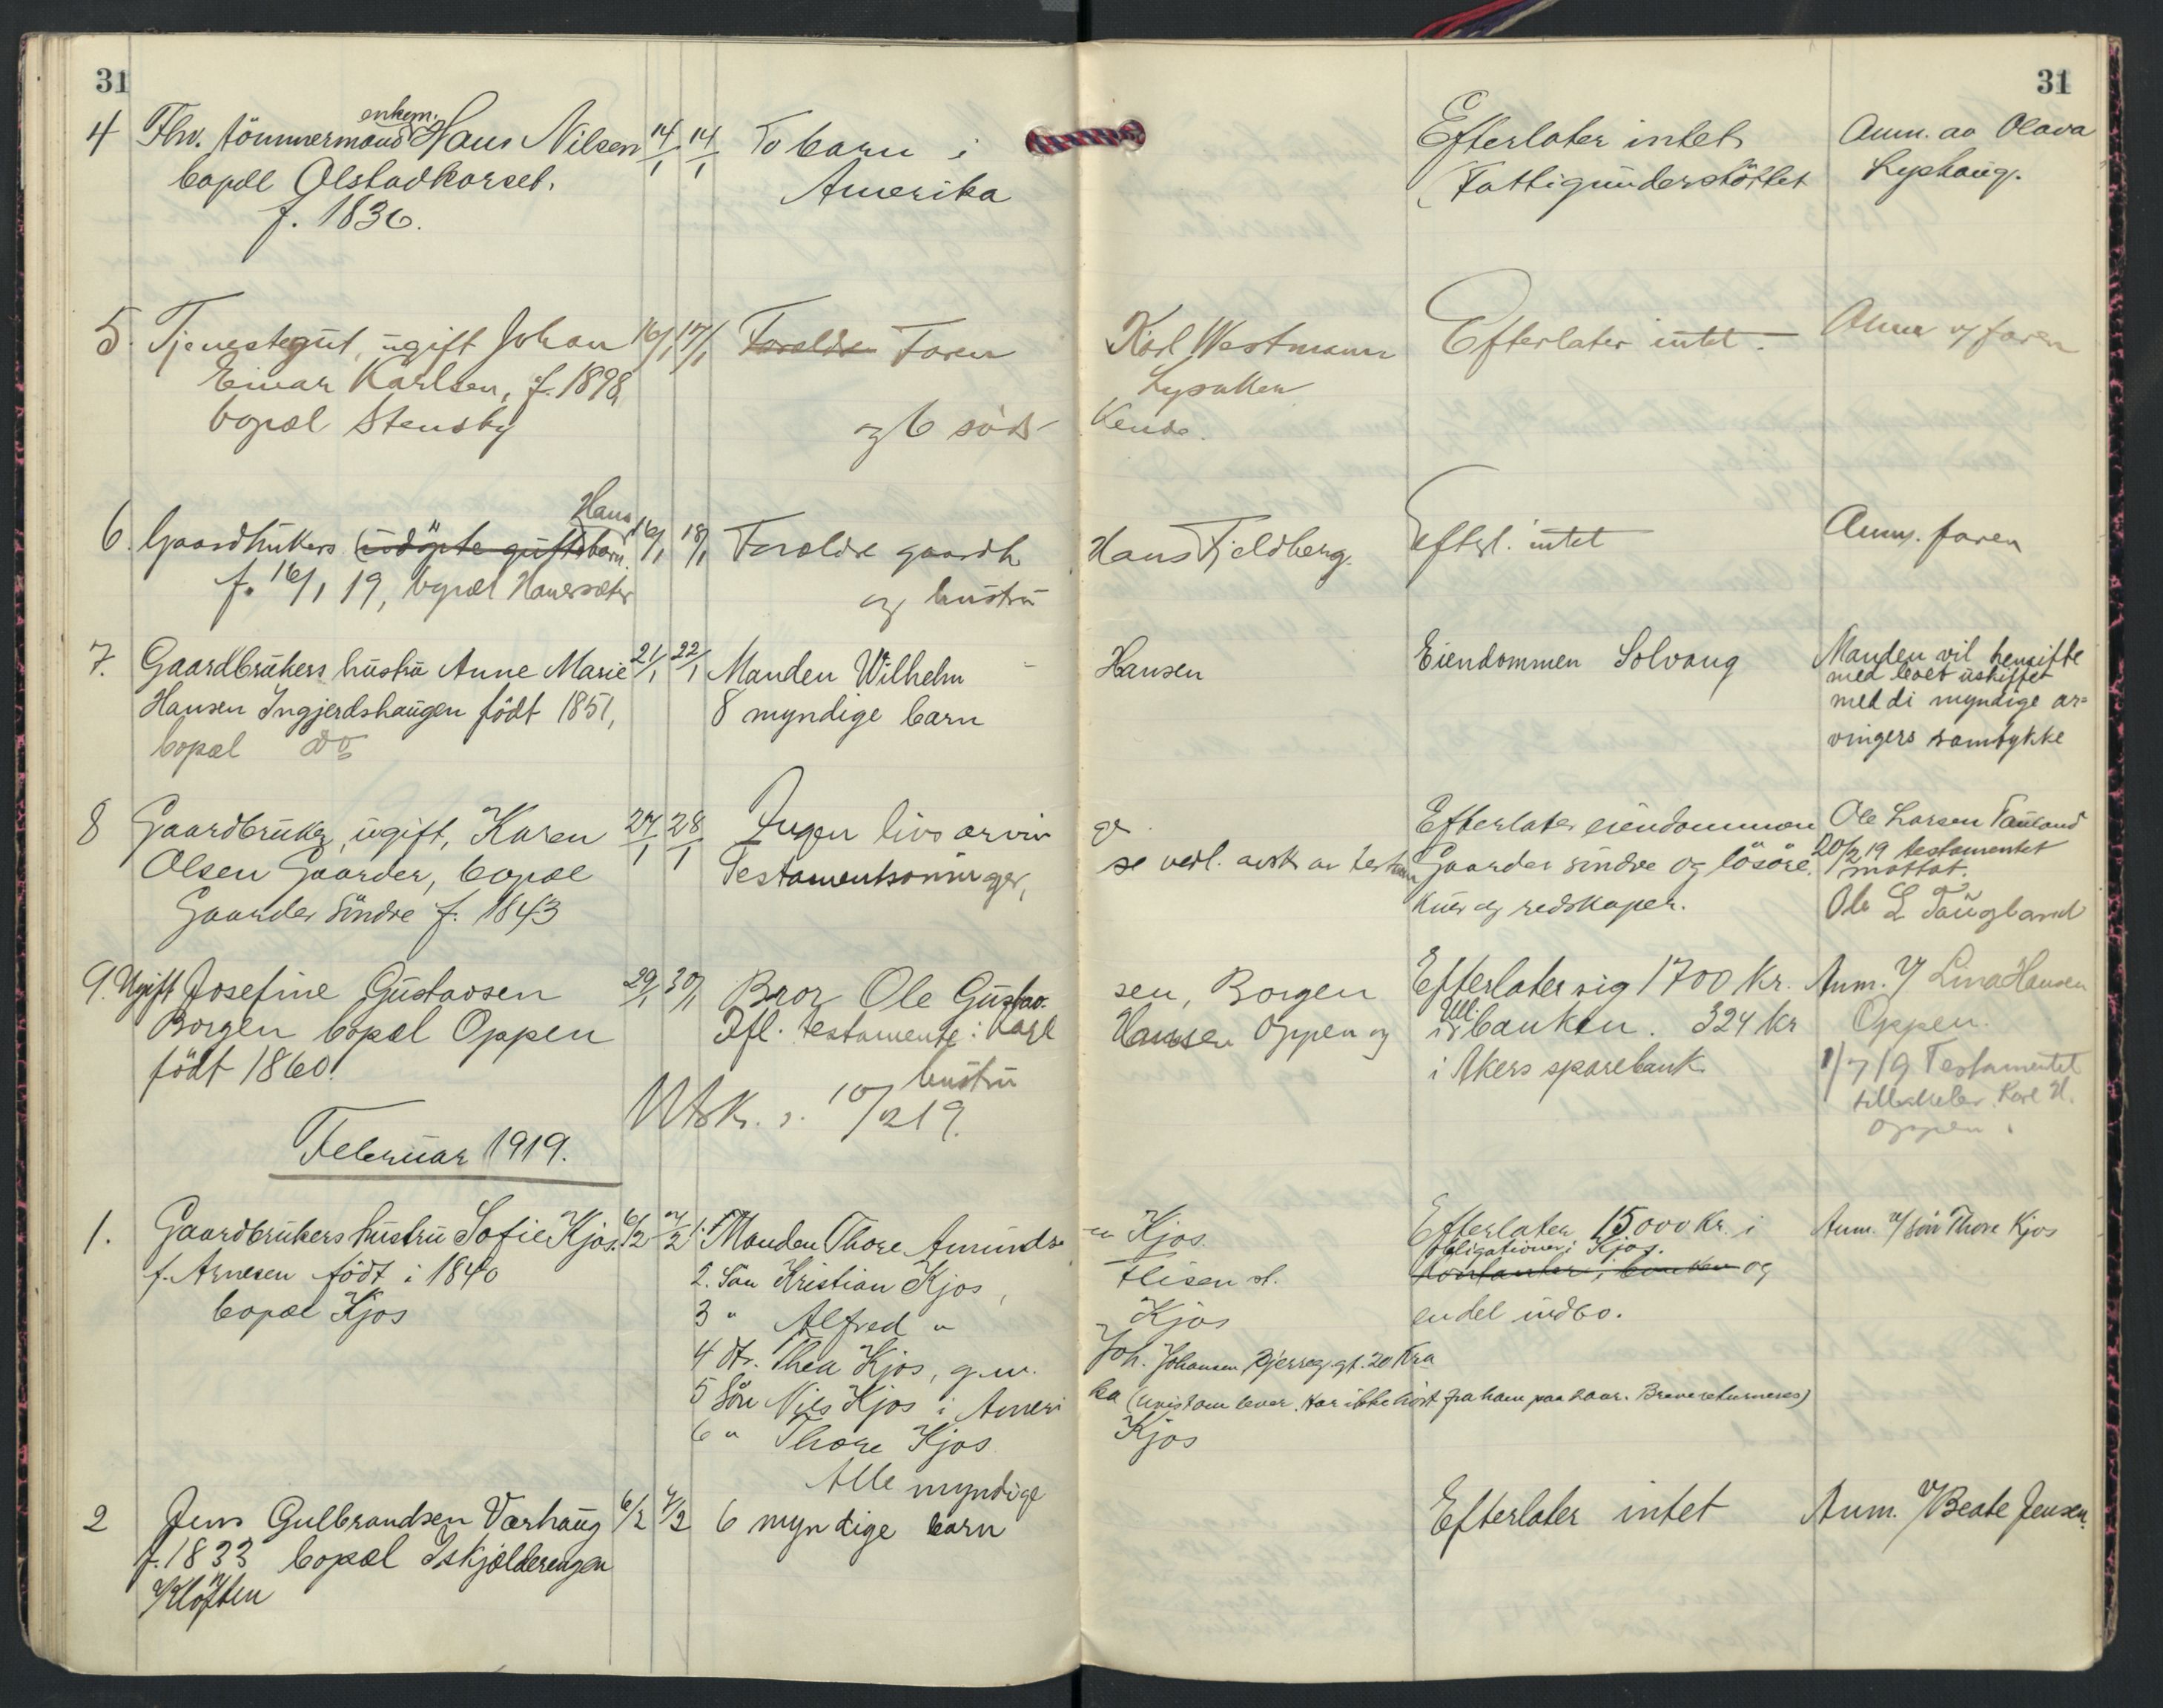 31
31
4 Fhv. tömmermand enkem. Hans Nilsen 14/1 14/1 To barn i Efterlater intet Anm. av Olava
bopæl Olstadkorset. Amerika (Fattigunderstöttet Lyshaug.
f. 1836.
5. Tjenestegut, ugift Johan 16/1 17/1 Forældre Faren Karl Westmann Efterlater intet. Anm v/ faren
Einar Karlsen, f. 1898,
bopæl Stensby og 6 södsken
6. Gaardbrukers (udöpte guttebarn Hans 16/1 18/1 Forældre gaardb. Hans Fjeldberg. Efterl. intet Anm. faren
f. 16/1 19, bopæl og hustru
7. Gaardbrukers hustru Anne Marie 21/1 22/1 Manden Wilhelm Hansen Eiendommen Solvang Manden vil hensitte
med boet uskiftet
Hansen Ingjerdshaugen födt 1851, 8 myndige barn med di myndige ar=
bopæl do vingers samtykke
8 Gaardbruker, ugift, Karen 27/1 28/1 Ingen livsarvin ger Efterlater eiendommen Ole Larsen Taugland
Olsen Gaarder, bopæl Testamentsarvinger, se vedl. avsk av testam Gaarder söndre og lösöre, 20/2 19 testamentet
mottat.
Gaarder Söndre f. 1843 kuer og redskaper. Ole L Taugland
9. Ugift Josefine Gustavsen 29/1 30/1 Bror Ole Gustav= sen, Borgen Efterlater sig 1700 kr. Anm. v/ Lina Hansen
Borgen bopæl Oppen Ifl. testamente: Karl Hansen Oppen og i Ull. banken. 324 kr Oppen.
födt 1860. hustru i Akers sparebank 1/7 19 Testamentet
Utsk. s. 10/2 19. Karl H.
Oppen.
Februar 1919.
1. Gaardbrukers hustru Sofie Kjos. 6/2 7/2 1. Manden Thore Amundse n Kjos. Efterlater 15000 Kr. i Anm. v/ sön Thore Kjos
f. Arnesen födt i 1840 2. Sön Kristian Kjos, Flisen st. obligationer i Kjos. kontanter i banken og
bopæl Kjos 3 " Alfred " Kjos endel indbo.
4 dtr. Thea Kjos, g.m. Joh. Johansen, Bjerreg. gt. 20 Kra
5 Sön Nils Kjos i Ameri ka (uvist om lever. Har ikke hört fra ham paa 2 aar. Breve returneres)
6 " Thore Kjos Kjos
Alle myndige
2 Jens Gulbrandsen Værhaug 6/2 7/2 6 myndige barn Efterlater intet Anm. v/ Beate Jensen.
f. 1833 bopæl Iskjælderengen
v/ Klöften